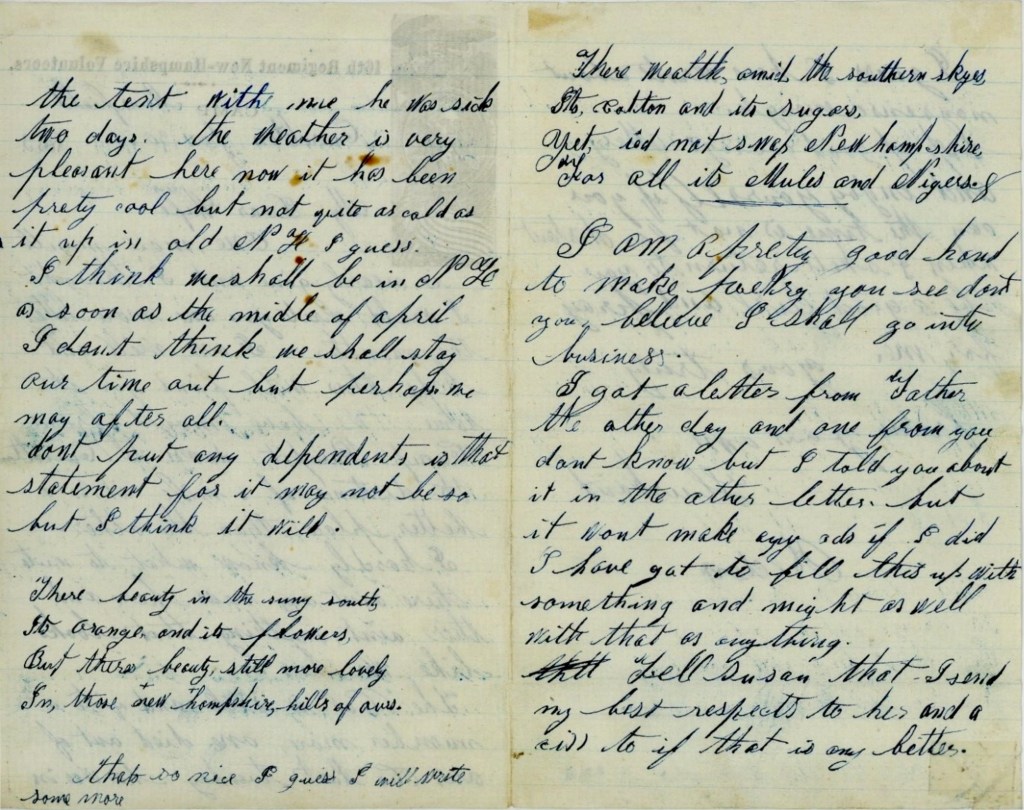 16th Regiment New-Hampshire Volunteers.
the tent with me he was sick
two days. the weather is very
pleasant here now it has been
prety cool but not quite as cold as
it up in old N H I guess.
I think we shall be in N H
as soon as the midle of april
I dont think we shall stay
our time out but perhaps we
may after all.
dont put any dependents is that
statement for it may not be so
but I think it will.
There beauty in the suny south,
Its oranges and its flowers,
But theres beauty, still more lovely
In, those new hampshire, hills of ours.
thats is nice I guess I will write
some more
There wealth, amid the southern skyes,
Its, cotton and its sugar,
Yet, not swap New hampshire,
For all its Mules and Nigers.
I am a prety good hand
to make poetry you see dont
you, beleive I shall go into
business.
I got a letter from Father
the other day and one from you
dont know but I told you about
it in the other letter. but
it wont make any ods if I did
I have got to fill this up with
something and might as well
with that as any thing.
Tell Susan that I send
my best respects to her and a
kiss to if that is any better.